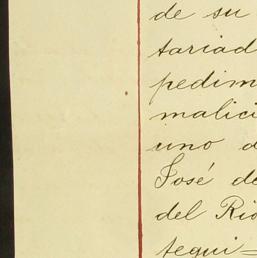 de su
tariad
pedim
malici
uno d
José de
del Rio
tequi=